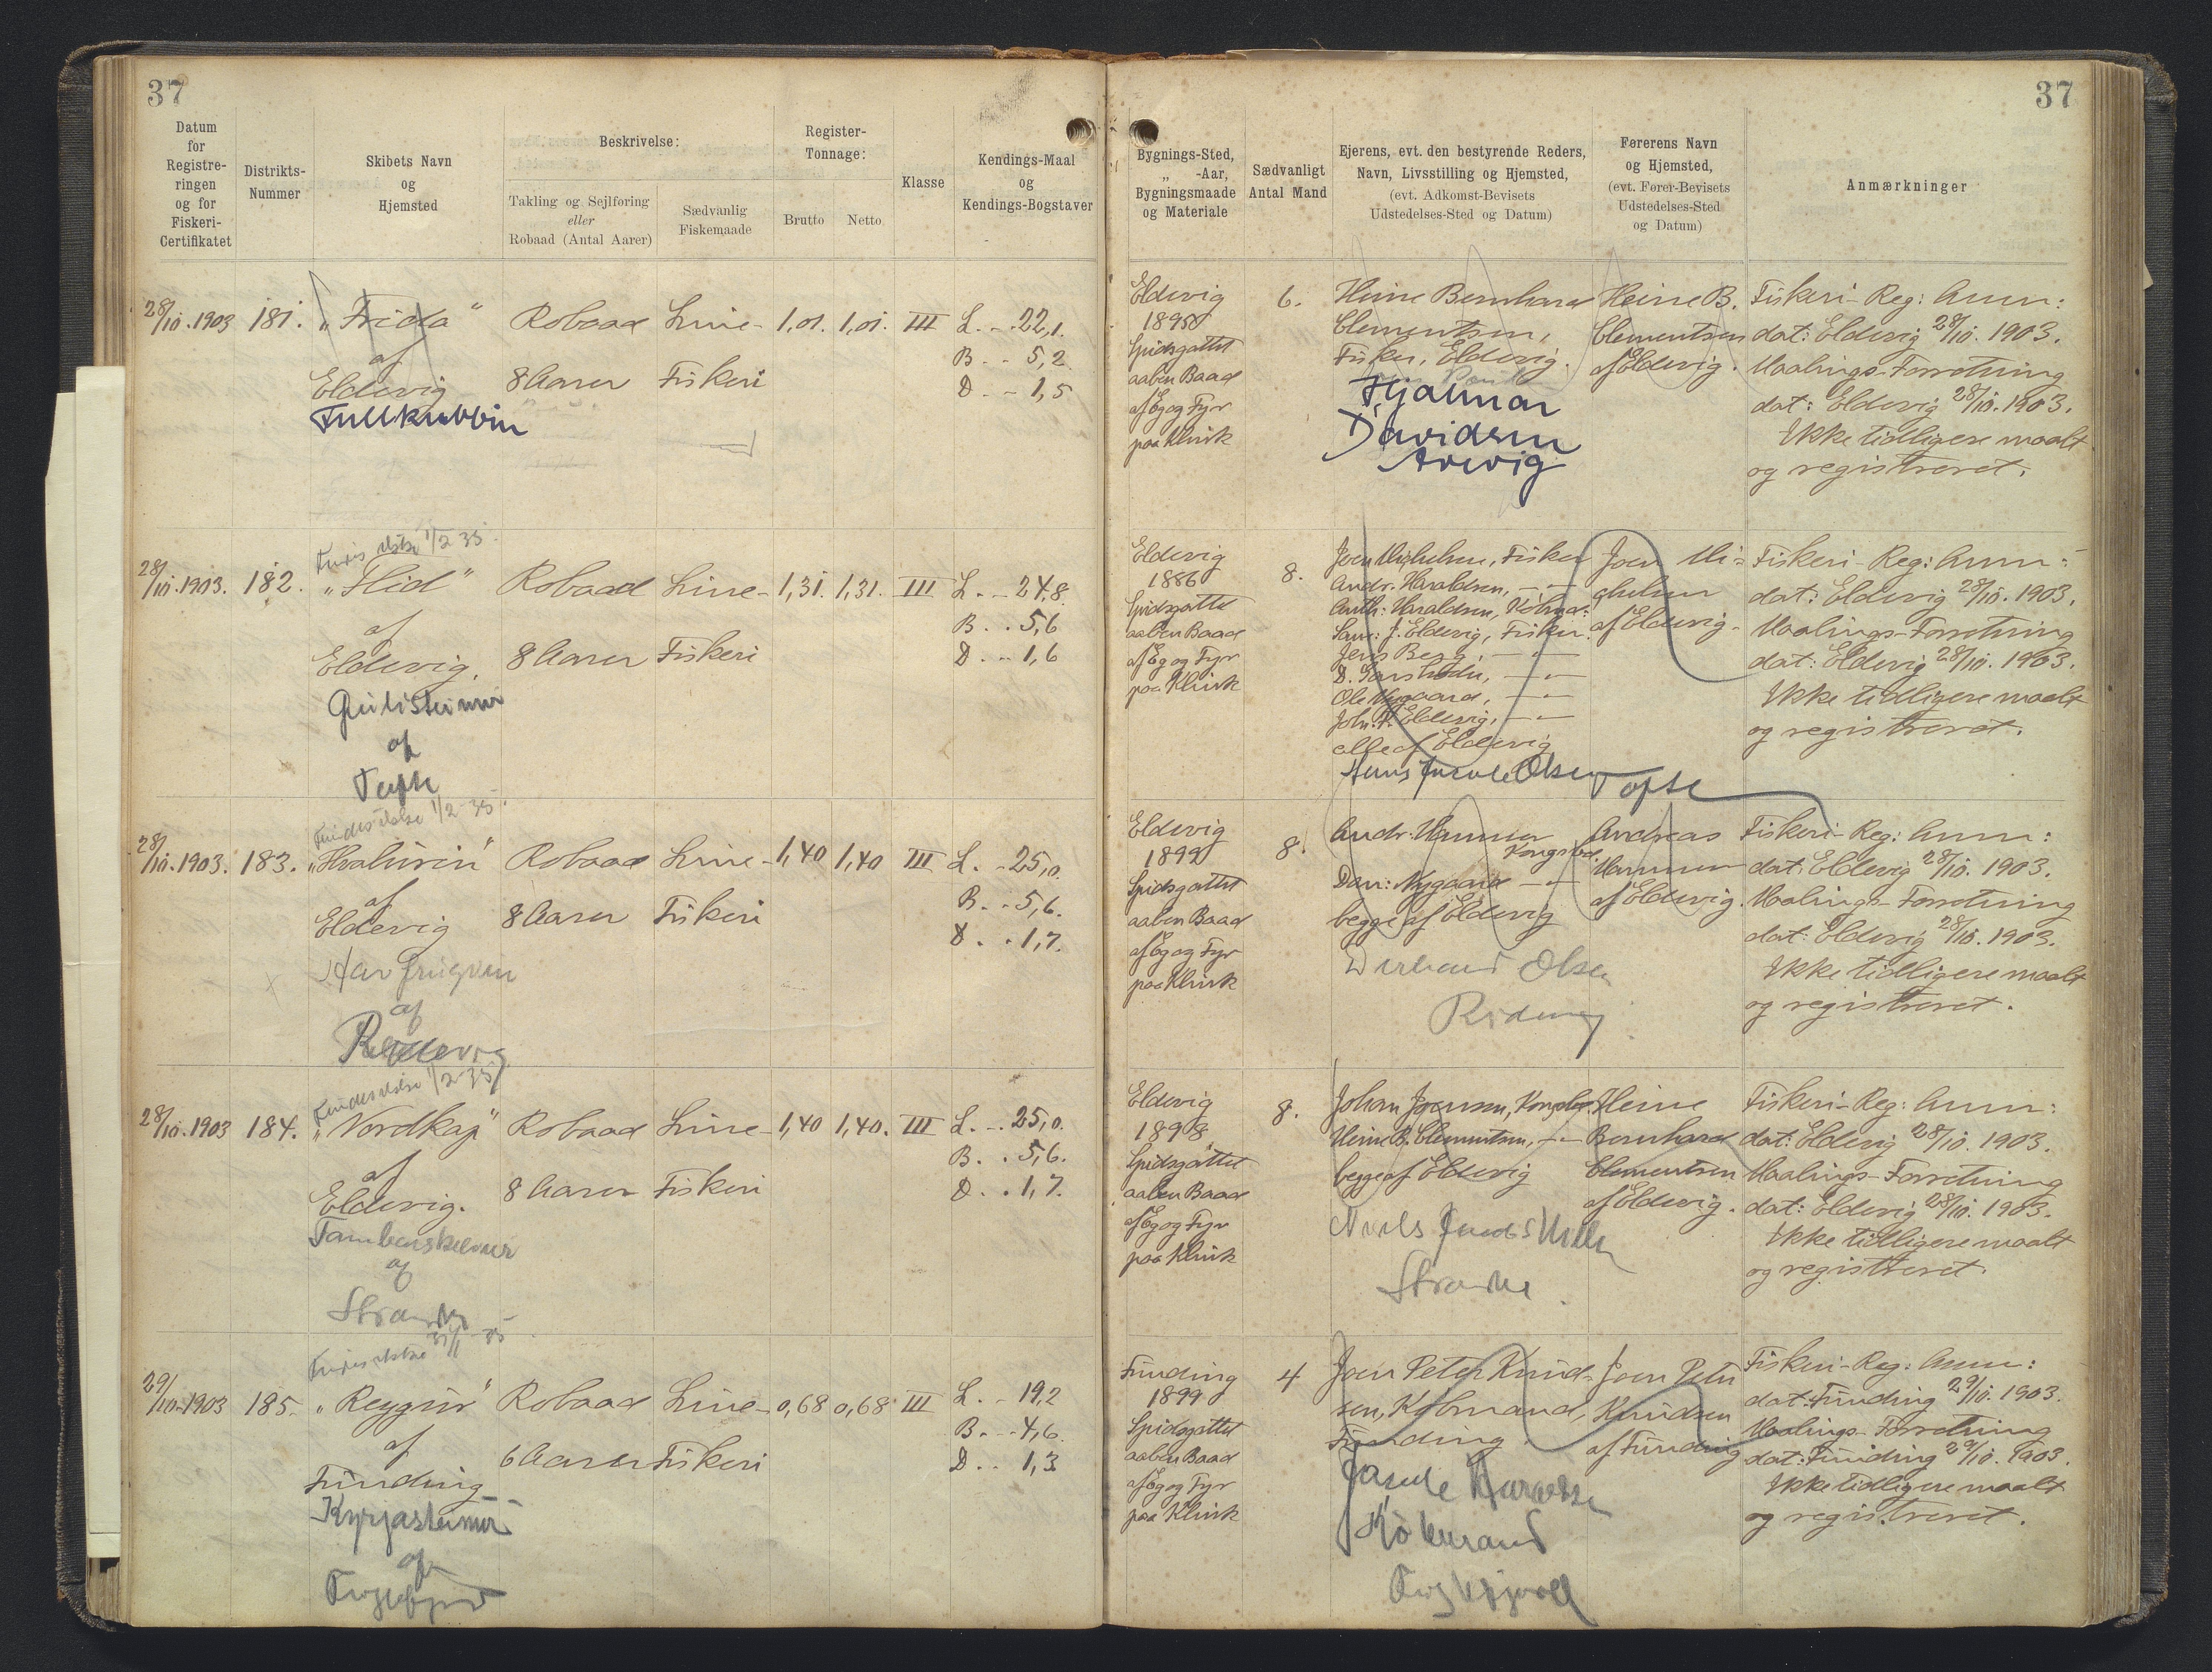 37
37
Datum
for
Registre-
ringen
og for
Fiskeri-
Certifikatet
Distrikts-
Nummer
Skibets Navn
og
Hjemsted
Beskrivelse:
Takling og Sejlføring
eller
Robaad (Antal Aarer)
Sædvanlig
Fiskemaade
Register-
Tonnage:
Brutto
Netto
Klasse
Kendings-Maal
og
Kendings-Bogstaver
Bygnings-Sted,
„ -Aar,
Bygningsmaade
og Materiale
Sædvanligt
Antal Mand
Ejerens, evt. den bestyrende Reders,
Navn, Livsstilling og Hjemsted,
(evt. Adkomst-Bevisets
Udstedelses-Sted og Datum)
Førerens Navn
og Hjemsted,
(evt. Fører-Bevisets
Udstedelses-Sted
og Datum)
Anmærkninger
28/10.1903
181.
„Frida“
af
Eldevig
Robaad
8 Aarer
Line-
Fiskeri
1,01.
1,01.
III
L. - - 22,1.
B - - 5,2.
D. - - 1,5
Eldevig
1895
Spidsgattet
aaben Baad
af Eg og Fyr
paa Klink
6.
Heine Bernhard
Clementsen,
Fisker, Eldevig.
Hjalmar
Davidsen
Heine B.
Clementsen
af Eldevig.
Fiskeri-Reg: Anm:
dat: Eldevig 28/10. 1903.
Maalings-Forretning
dat: Eldevig 28/10. 1903.
Ikke tidligere maalt
og registreret.
1/2 35.
28/10.1903.
182.
„Flid“
af
Eldevig.
af
Tofte
Robaad
8 Aarer
Line-
Fiskeri
1,31.
1,31.
III
L. - - 24,8.
B. . . 5,6
D. - - 1,6
Eldevig
1886
Spidsgattet
aaben Baad
af Eg og Fyr
paa Klink
8.
Andr. Haraldsen, — „ —
Sam: J. Eldevig, Fisker.
Jens Berg, — „ —
Ole Nygaard, — „ —
Joh. P. Eldevig, — „ —
alle af Eldevig
Olsen
Tofte
af Eldevig.
Fiskeri-Reg: Anm:
dat: Eldevig 28/10. 1903.
Maalings-Forretning
dat: Eldevig 28/10. 1903.
Ikke tidligere maalt
og registreret.
1/2 35.
28/10.1903.
183.
„Hvalurin“
af
Eldevig
af
Robaad
8 Aarer
Line-
Fiskeri
1,40
1,40
III
L. - 25,0.
B. . . 5,6.
D. . . 1,7.
Eldevig
1899
Spidsgattet
aaben Baad
af Eg og Fyr
paa Klink
8.
Dan: Nygaard — „ —
begge af Eldevig
Olsen
Andreas
af Eldevig.
Fiskeri-Reg: Anm:
dat: Eldevig 28/10. 1903.
Maalings-Forretning
dat: Eldevig 28/10. 1903.
Ikke tidligere maalt
og registreret.
1/2 35
28/10.1903
184.
„Nordkap“
af
Eldevig.
af
Robaad
8 Aarer
Line-
Fiskeri
1,40
1,40.
III
L. - . 25,0.
B. . . 5,6.
D. . . 1,7.
Eldevig
1898
Spidsgattet
aaben Baad
af Eg og Fyr
paa Klink
8.
Johan Joensen,
Heine B. Clementsen, — „ —
begge af Eldevig
Heine
Bernhard
Clementsen
af Eldevig.
Fiskeri-Reg: Anm:
dat: Eldevig 28/10. 1903.
Maalings-Forretning
dat: Eldevig 28/10. 1903.
Ikke tidligere maalt
og registreret.
29/10.1903
185.
„Reygin“
af
Funding
af
Robaad
6 Aarer
Line-
Fiskeri
0,68
0,68
III
L. - 19,2
B. - - 4,6.
D. . . 1,3
Funding
1899
Spidsgattet
aaben Baad
af Eg og Fyr
paa Klink
4
Joen Peter Knud-
sen, Købmand,
Funding.
Joen Peter
Knudsen
af Funding
Fiskeri-Reg: Anm:
dat: Funding 29/10. 1903.
Maalings-Forretning
dat: Funding 29/10. 1903.
Ikke tidligere maalt
og registreret.